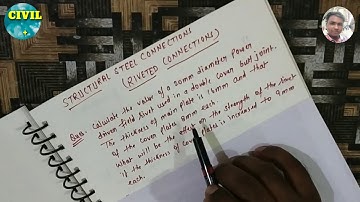 CIVIL
STRUCTURAL STEEL CONNECTIONS
(RIVETED CONNECTIONS)
Que: Calculate the value of a 20mm diameter power
driven field rivet used in a double cover butt joint.
The thickness of main plate is 14mm and that
of the cover plates 8mm each.
What will be the effect on the strength of the rivet
if the thickness of cover plates is increased to 9mm
each.